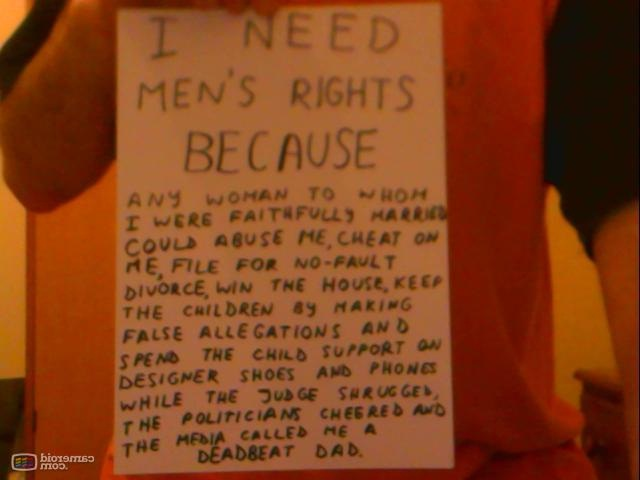 I NEED
MEN'S RIGHTS
BECAUSE
ANY WOMAN TO WHOM
I WERE FAITHFULLY MARRIED
COULD ABUSE ME, CHEAT ON
ME, FILE FOR NO-FAULT
DIVORCE, WIN THE HOUSE, KEEP
THE CHILDREN BY MAKING
FALSE ALLEGATIONS AND
SPEND THE CHILD SUPPORT ON
DESIGNER SHOES AND PHONES
WHILE THE JUDGE SHRUGGED,
THE POLITICIANS CHEERED AND
THE MEDIA CALLED ME A
DEADBEAT DAD.
cameroid
.com